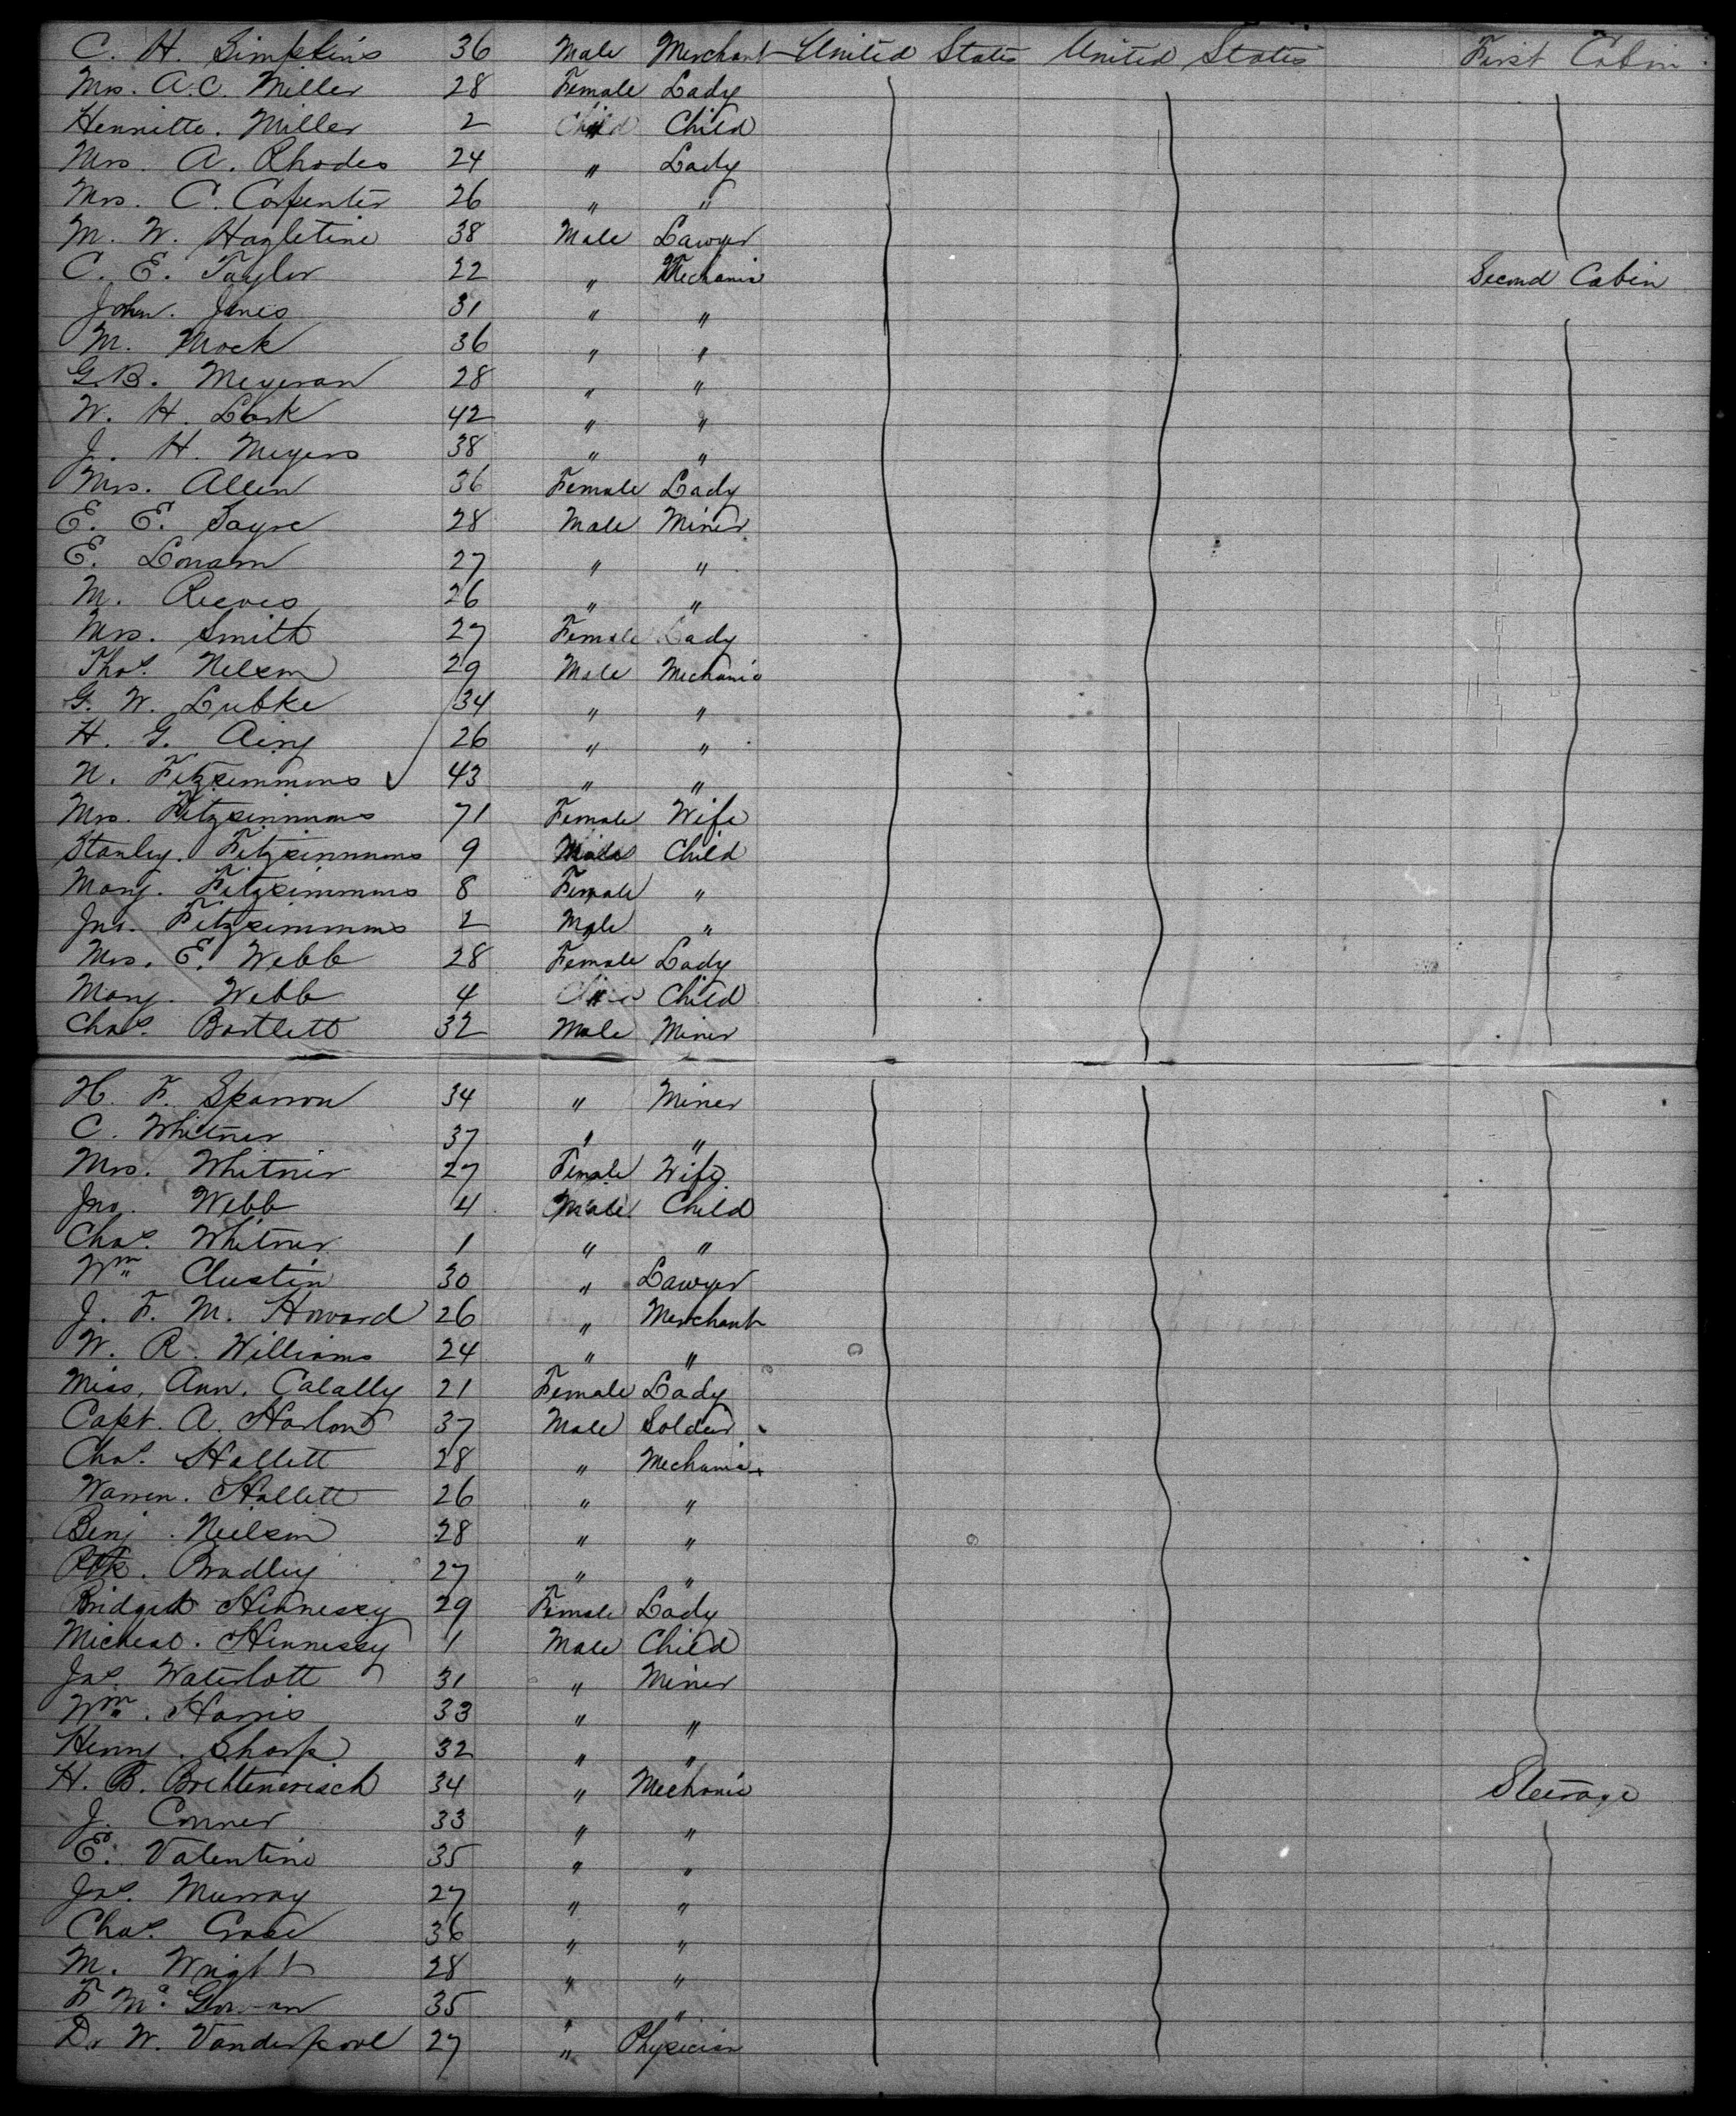 C. H. Simpkins 36 Male Merchant United States United States First Cabin
Mrs. A. C. Miller 28 Female Lady
Hennitte. Miller 2 " Child
Mrs. A. Rhodes 24 " Lady
Mrs. C. Carpenter 26 " "
M. W. Hazletine 38 Male Lawyer
C. E. Taylor 22 " Mechanic Second Cabin
John. Jones 31 " "
M. Mock 36 " "
G. B. Meyeran 28 " "
W. H. Lark 42 " "
J. H. Meyers 38 " "
Mrs. Allen 36 Female Lady
E. E. Sayre 28 Male Miner
E. 27 " "
M. Reeves 26 " "
Mrs. Smith 27 Female Lady
Thos. Nelson 29 Male Mechanic
G. W. Lubke 34 " "
H. G. Airy 26 " "
N. Fitzsimmons 43 " "
Mrs. Fitzsimmons 71 Female Wife
Stanley. Fitzsimmons 9 Male Child
Mary. Fitzsimmons 8 Female "
Jno. Fitzsimmons 2 Male "
Mrs. E. Webb 28 Female Lady
Mary. Webb 4 " Child
Chas. Bartlett 32 Male Miner
H. F. Sparrow 34 " Miner
C. Whitner 37 " "
Mrs. Whitner 27 Female Wife
Jno. Webb 4 Male Child
Chas. Whitner 1 " "
Wm. Austin 30 " Lawyer
J. F. M. Howard 26 " Merchant
W. R. Williams 24 " "
Miss. Ann. Calally 21 Female Lady
Capt. A. Harlow 37 Male Soldier
Chas. Hallett 28 " Mechanic
Warren. Hallett 26 " "
Benj. Neilson 28 " "
Bradley 27 " "
Bridget Hennessy 29 Female Lady
Micheal. Hennessy 1 Male Child
Jas. Waterlott 31 " Miner
Wm. Harris 33 " "
Henry. Sharp 32 " "
H. B. 34 " Mechanic Steerage
J. Conner 33 " "
E. Valentine 35 " "
Jas. Murray 27 " "
Chas. 36 " "
M. Wright 28 " "
F. McGowan 35 " "
Dr W. Vanderpool 27 " Physician